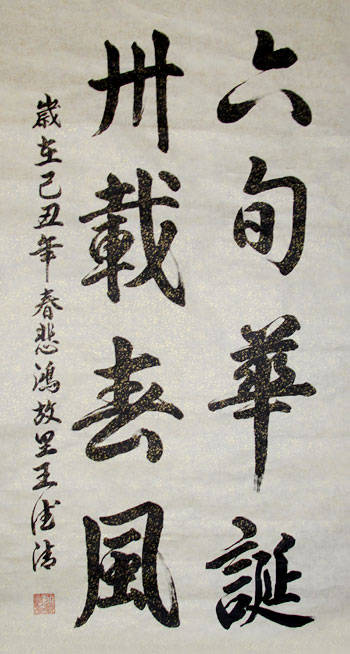 六旬華誕
卅載春風
歲在己丑年春悲鴻故里王德清